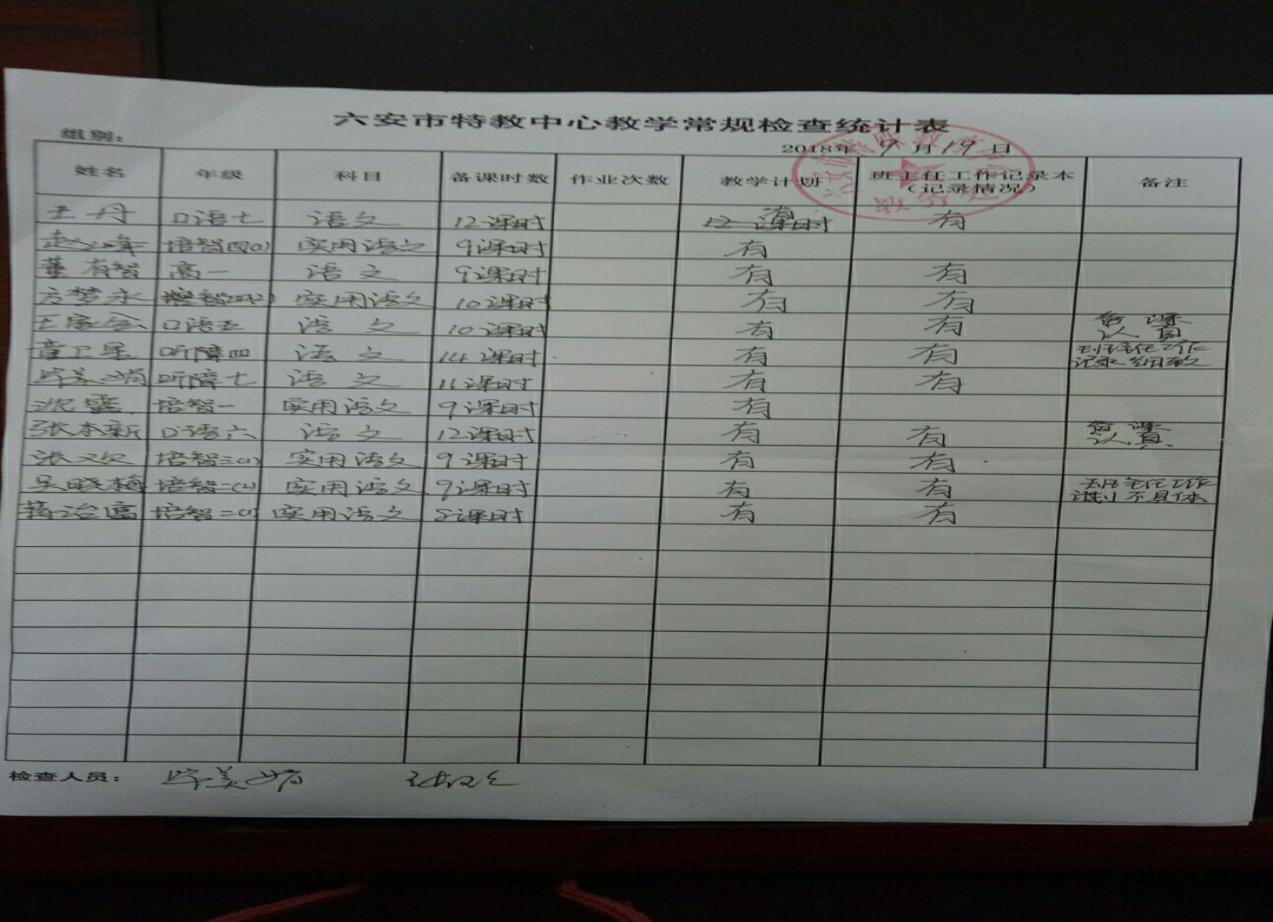 六安市特教中心教学常规检查统计表
组别：
2018年 9 月 19 日
姓名 年级 科目 备课时数 作业次数 教学计划 班主任工作记录本（记录情况） 备注
王丹 口语七 语文 12课时 有 有
赵 培智四(1) 实用语文 9课时 有
董有智 高一 语文 9课时 有 有
方梦永 培智 实用语文 10课时 有 有
王家全 口语五 语文 10课时 有 有 备课认真
童卫星 听障四 语文 14课时 有 有 班主任工作记录细致
毕美娟 听障七 语文 11课时 有 有
沈 培智一 实用语文 9课时 有
张本新 口语六 语文 12课时 有 有 备课认真
张 培智三(1) 实用语文 9课时 有 有
吴晓梅 培智二(2) 实用语文 9课时 有 有 班主任工作计划不具体
蒋治富 培智二(1) 实用语文 8课时 有 有
检查人员： 毕美娟
教务处